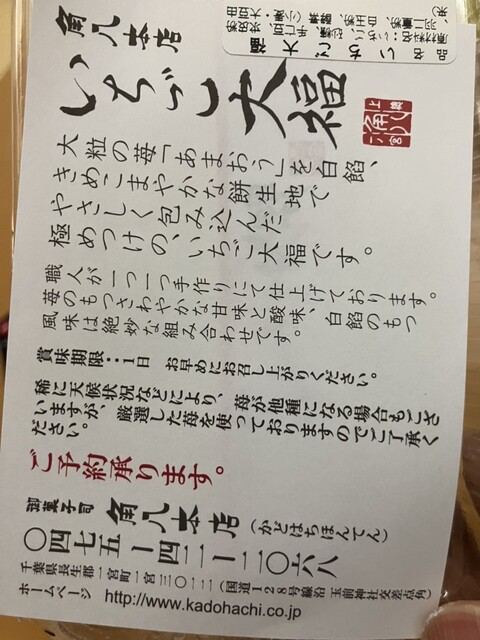 角八本店
いちご大福
大粒の苺「あまおう」を白餡、
きめこまやかな餅生地で
やさしく包み込んだ
極めつけの、いちご大福です。
職人が一つ一つ手作りにて仕上げております。
苺のもつさわやかな甘味と酸味、白餡のもつ
風味は絶妙な組み合わせです。
賞味期限：１日　お早めにお召し上がりください。
稀に天候状況などにより、苺が他種になる場合もござ
いますが、厳選した苺を使っておりますのでご了承く
ださい。
ご予約承ります。
御菓子司 角八本店（かどはちほんてん）
〇四七五ー四二ー二〇六八
千葉県長生郡一宮町一宮三〇二二（国道１２８号線沿 玉前神社交差点角）
ホームページ http://www.kadohachi.co.jp
品名 いちご大福